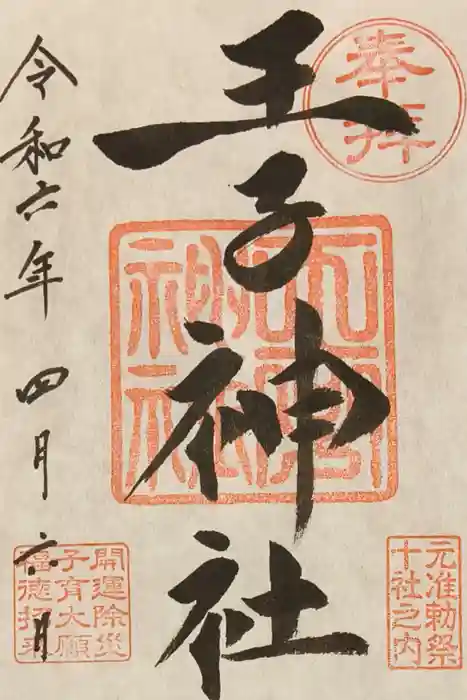 奉拝
王子神社
元准勅祭
十社之内
令和六年四月六日
開運除災
子育大願
福徳招来